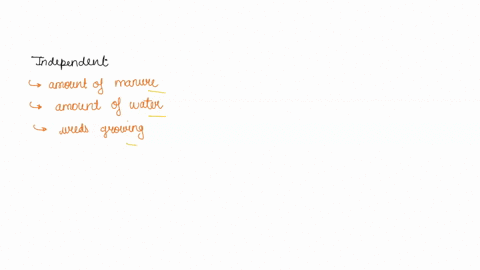 Independent
↳ amount of manure
↳ amount of water
↳ weeds growing